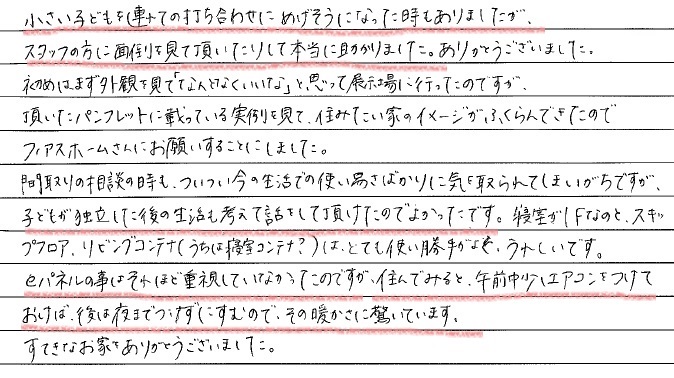 小さい子どもを連れての打ち合わせにめげそうになった時もありましたが、
スタッフの方に面倒を見て頂いたりして本当に助かりました。ありがとうございました。
初めはまず外観を見て「なんとなくいいな」と思って展示場に行ったのですが、
頂いたパンフレットに載っている実例を見て、住みたい家のイメージがふくらんできたので
フィアスホームさんにお願いすることにしました。
間取りの相談の時も、ついつい今の生活での使い易さばかりに気を取られてしまいがちですが、
子どもが独立した後の生活も考えて話をして頂けたのでよかったです。寝室が1Fなのと、スキッ
プフロア、リビングコンテナ(うちは寝室コンテナ?)は、とても使い勝手がよく、うれしいです。
eパネルの事はそれほど重視していなかったのですが、住んでみると、午前中少しエアコンをつけて
おけば、後は夜までつけずにすむので、その暖かさに驚いています。
すてきなお家をありがとうございました。